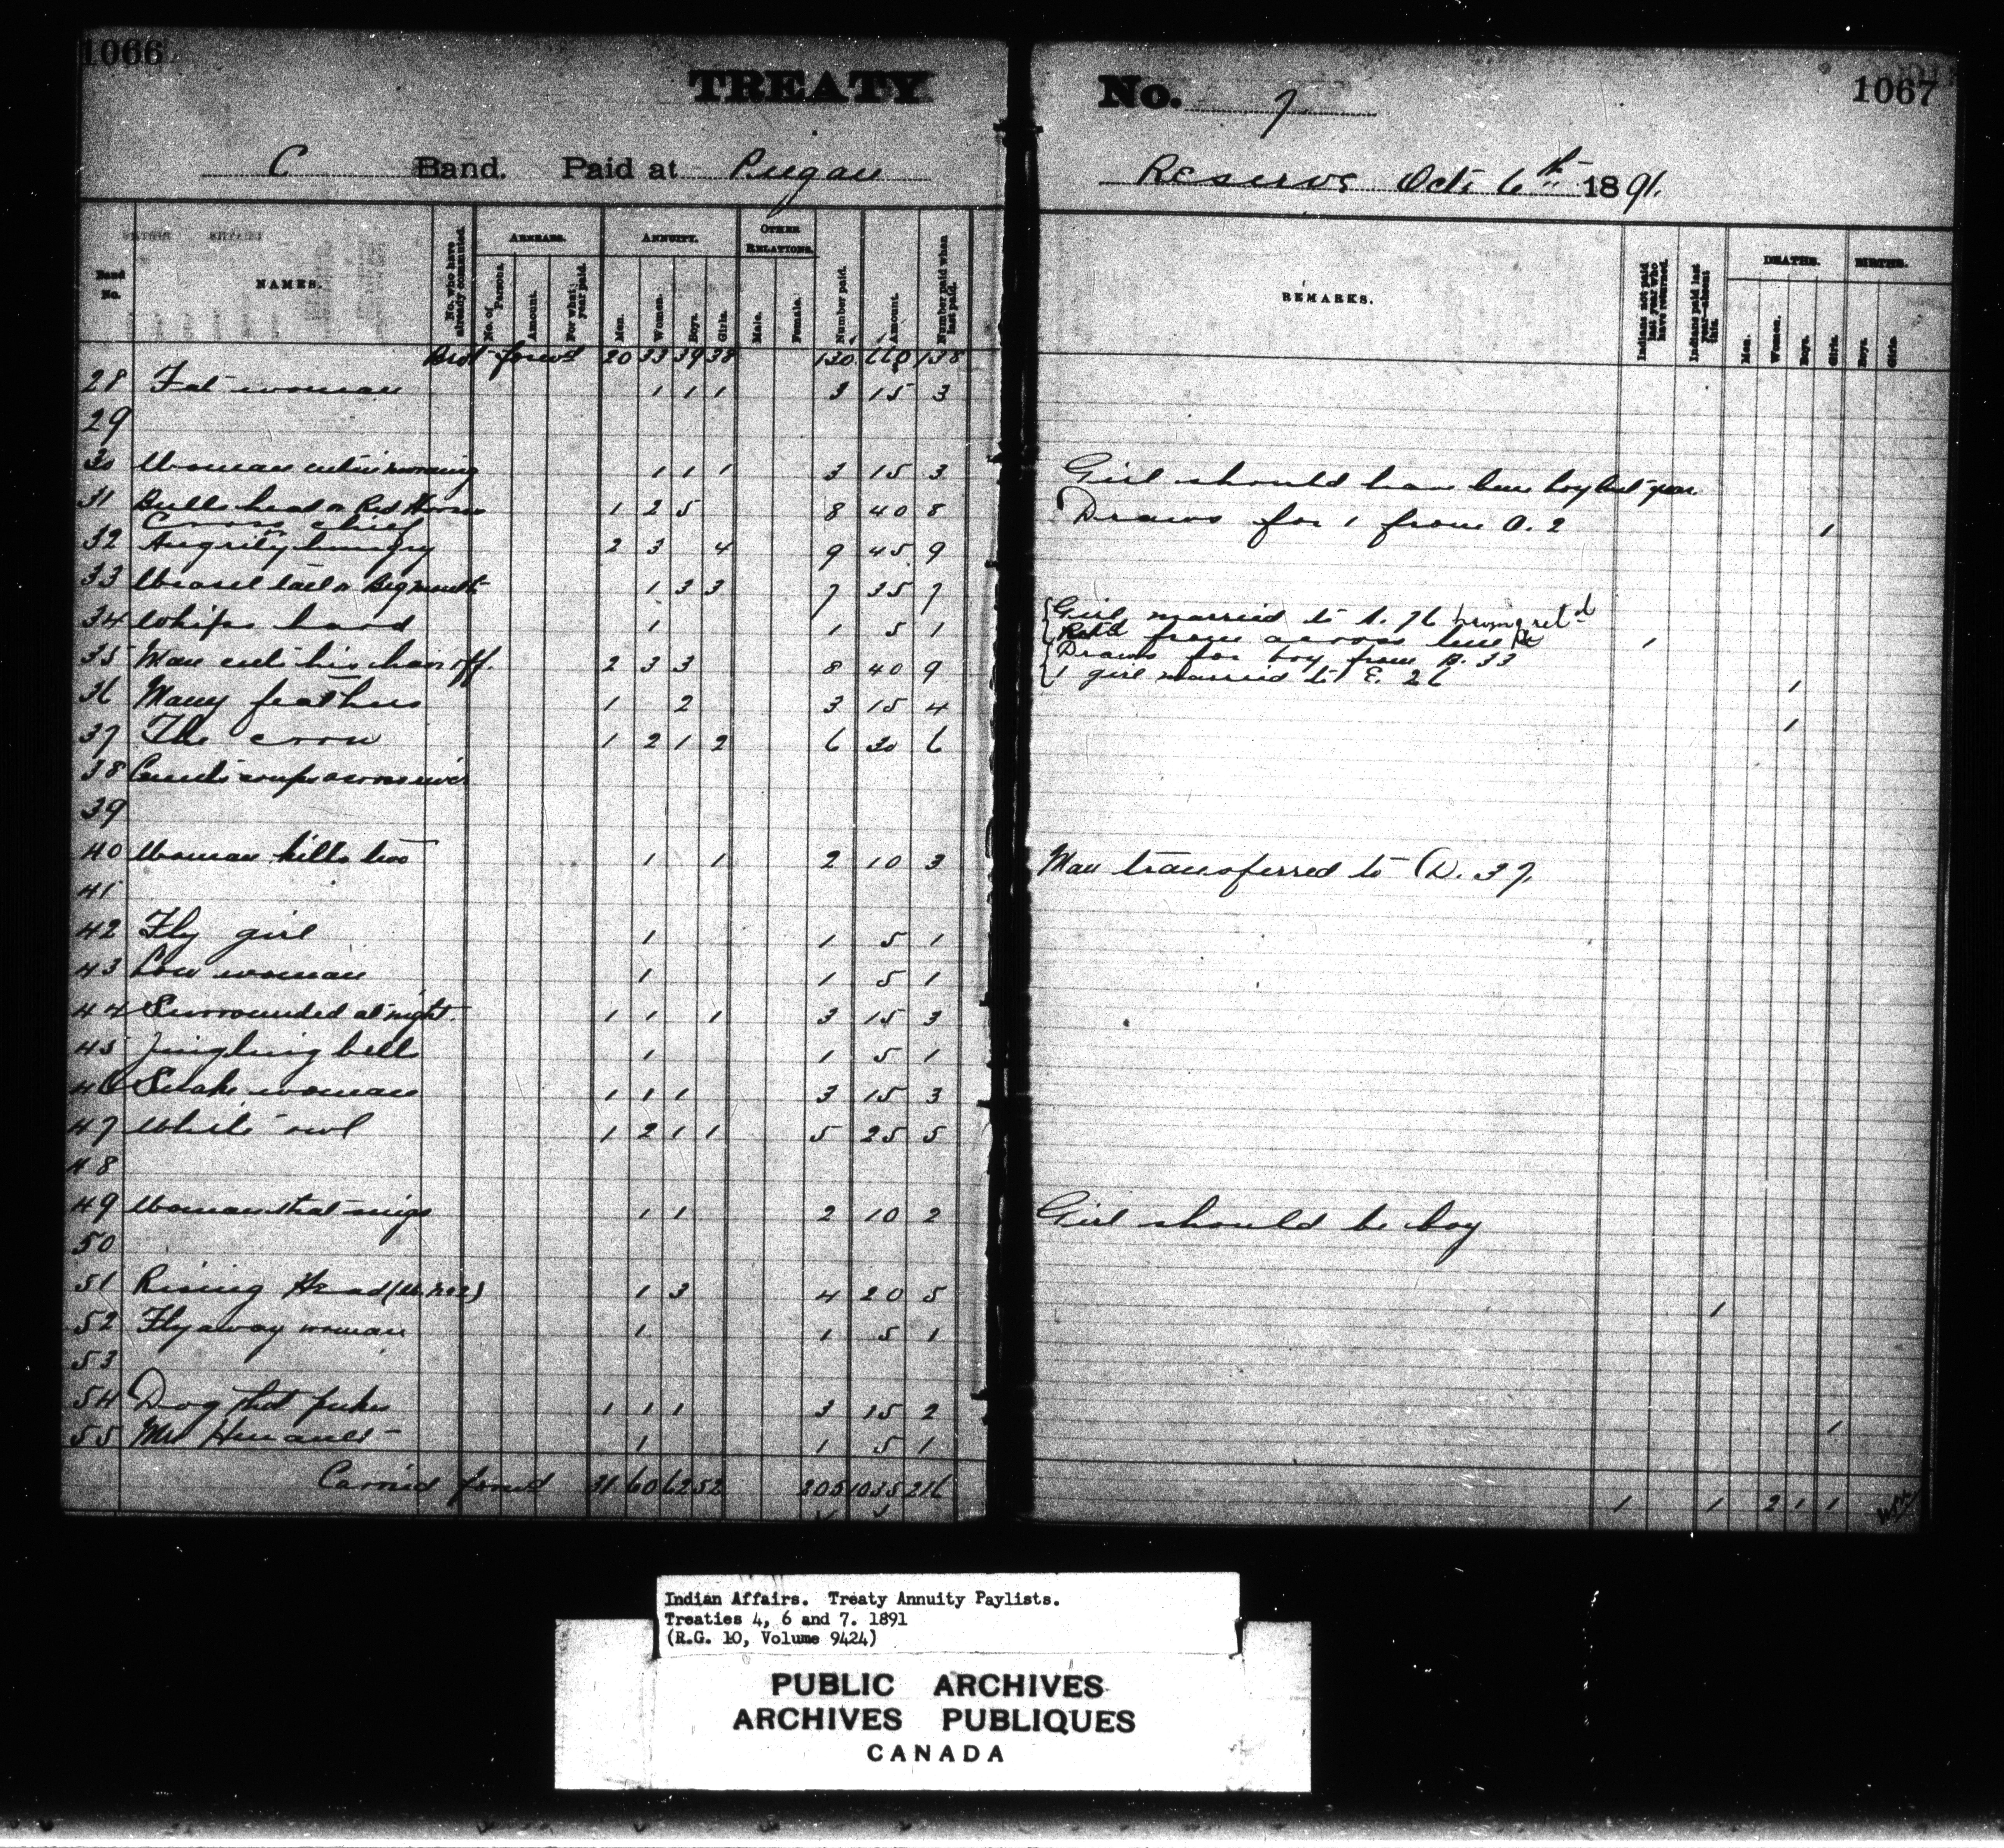 1066
TREATY No. 7
1067
C Band. Paid at Piegan Reserve Oct. 6th 1891.
Band No.
NAMES.
No. who have already commuted.
ARREARS.
No. of Persons.
Amount.
For what year paid.
ANNUITY.
Men.
Women.
Boys.
Girls.
OTHER RELATIONS.
Male.
Female.
Number paid.
Amount.
Number paid when last paid.
REMARKS.
Indians not paid last year who have returned.
Indians paid last year—absent this.
DEATHS.
Men.
Women.
Boys.
Girls.
BIRTHS.
Boys.
Girls.
Brot forwd 20 33 39 38 130 660 138
28 Fat woman 1 1 1 3 15 3
29
30 Woman cuts in morning 1 1 1 3 15 3 Girl should have been boy last year
31 Bulls head or Red Horns 1 2 5 8 40 8 Draws for 1 from A. 2 1
Cross chief
32 Angrily hungry 2 3 4 9 45 9
33 Weasel tail or Big mouth 1 3 3 7 35 7
34 Whips hard 1 1 5 1 Girl married to A. 76 wrong retd
Retd from across line 1
35 Man cuts his hair off. 2 3 3 8 40 9 Draws for boy from B. 33
1 girl married to E. 26 1
36 Many feathers 1 2 3 15 4 1
37 The crow 1 2 1 2 6 30 6
38 Counts coups across river
39
40 Woman kills two 1 1 2 10 3 Man transferred to D. 37.
41
42 Fly girl 1 1 5 1
43 Low woman 1 1 5 1
44 Surrounded at night. 1 1 1 3 15 3
45 Jingling bell 1 1 5 1
46 Snake woman 1 1 1 3 15 3
47 White owl 1 2 1 1 5 25 5
48
49 Woman that sings 1 1 2 10 2 Girl should be boy
50
51 Rising Head 1 3 4 20 5 1
52 Fly away woman 1 1 5 1
53
54 Dog that pukes 1 1 1 3 15 2 1
55 Mrs 1 1 5 1
Carried forwd 31 60 62 52 205 1035 216 1 1 2 1 1
Indian Affairs. Treaty Annuity Paylists.
Treaties 4, 6 and 7. 1891
(R.G. 10, Volume 9424)
PUBLIC ARCHIVES
ARCHIVES PUBLIQUES
CANADA